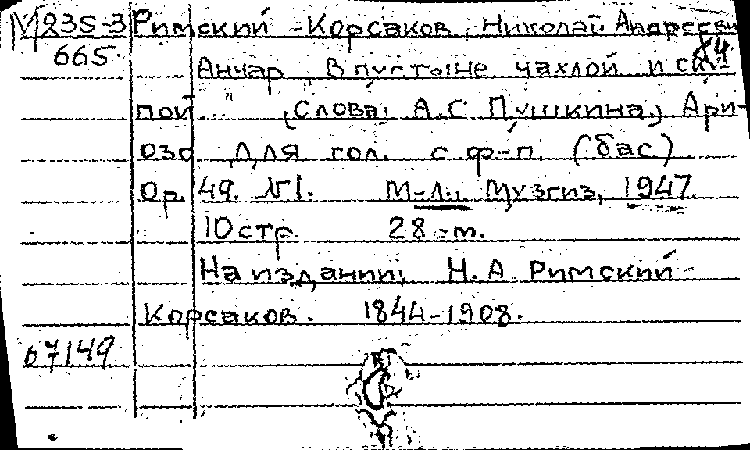 М235-3 Римский-Корсаков, Николай Андрееви
665 84
Анчар „В пустыне чахлой и ску-
пой..." (Слова: А.С. Пушкина.) Ари-
озо для гол. с ф-п. (бас)
Ор. 49. №1. М-Л., Музгиз, 1947.
10 стр. 28 -т.
На издании: Н.А. Римский-
Корсаков. 1844-1908.
67149